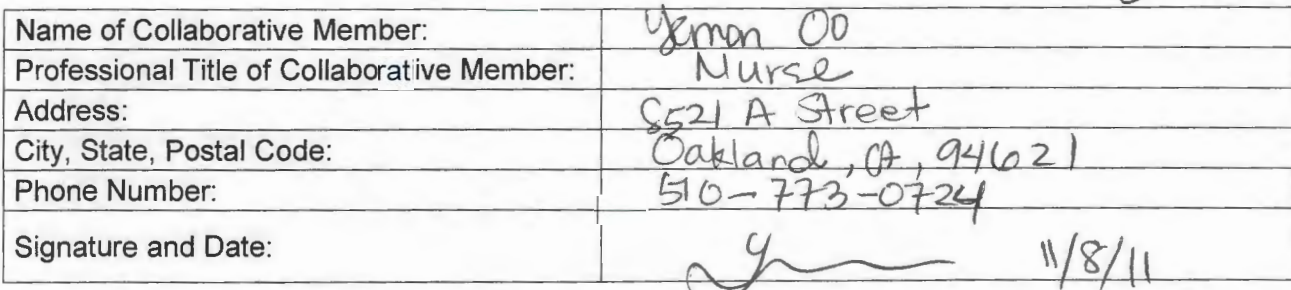 Name of Collaborative Member: Yemon OO
Professional Title of Collaborative Member: Nurse
Address: 8521 A Street
City, State, Postal Code: Oakland, CA, 94621
Phone Number: 510-773-0724
Signature and Date: 11/8/11